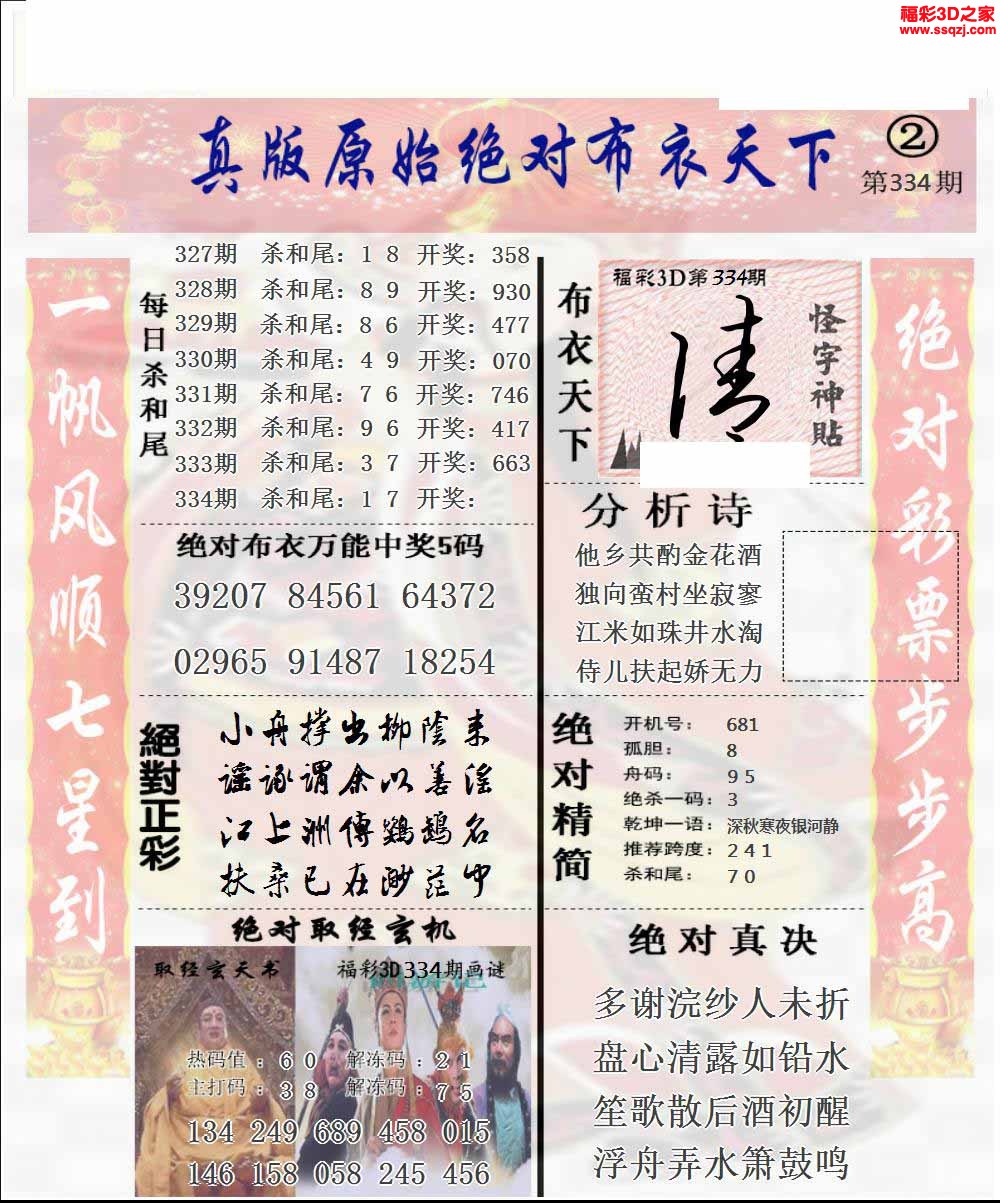 福彩3D之家
www.ssqzj.com
真版原始绝对布衣天下
②
第334期
一帆风顺七星到
绝对彩票步步高
每日杀和尾
327期 杀和尾：1 8 开奖：358
328期 杀和尾：8 9 开奖：930
329期 杀和尾：8 6 开奖：477
330期 杀和尾：4 9 开奖：070
331期 杀和尾：7 6 开奖：746
332期 杀和尾：9 6 开奖：417
333期 杀和尾：3 7 开奖：663
334期 杀和尾：1 7 开奖：
绝对布衣万能中奖5码
39207 84561 64372
02965 91487 18254
絕對正彩
小舟撑出柳陰来
谣诼谓余以善淫
江上洲傳鸚鵡名
扶桑已在渺茫中
绝对取经玄机
取经玄天书
福彩3D334期画谜
热码值：6 0 解冻码：2 1
主打码：3 8 解冻码：7 5
134 249 689 458 015
146 158 058 245 456
布衣天下
福彩3D第334期
清
怪字神貼
分析诗
他乡共酌金花酒
独向蛮村坐寂寥
江米如珠井水淘
侍儿扶起娇无力
绝对精简
开机号：681
孤胆：8
舟码：9 5
绝杀一码：3
乾坤一语：深秋寒夜银河静
推荐跨度：2 4 1
杀和尾：7 0
绝对真决
多谢浣纱人未折
盘心清露如铅水
笙歌散后酒初醒
浮舟弄水箫鼓鸣